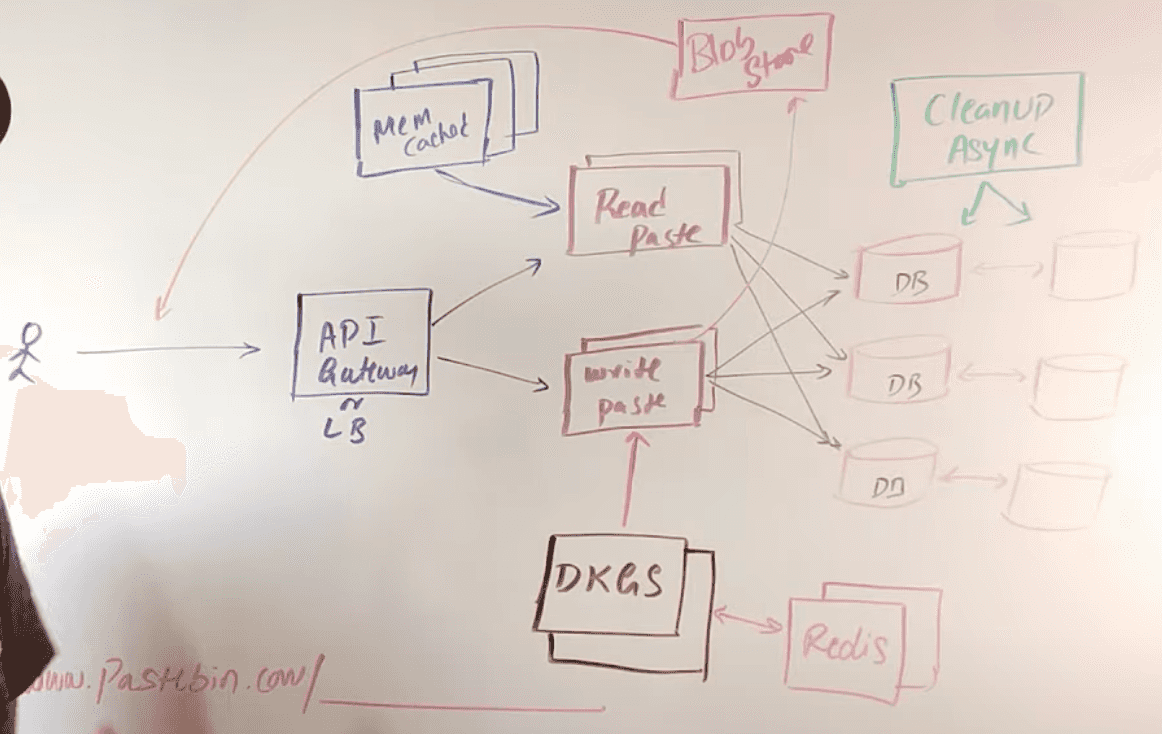 Blob
Store
Mem
Cached
Cleanup
Async
Read
Paste
API
Gateway
or
LB
write
paste
DB
DB
DB
DKGS
Redis
www.Pastebin.com/